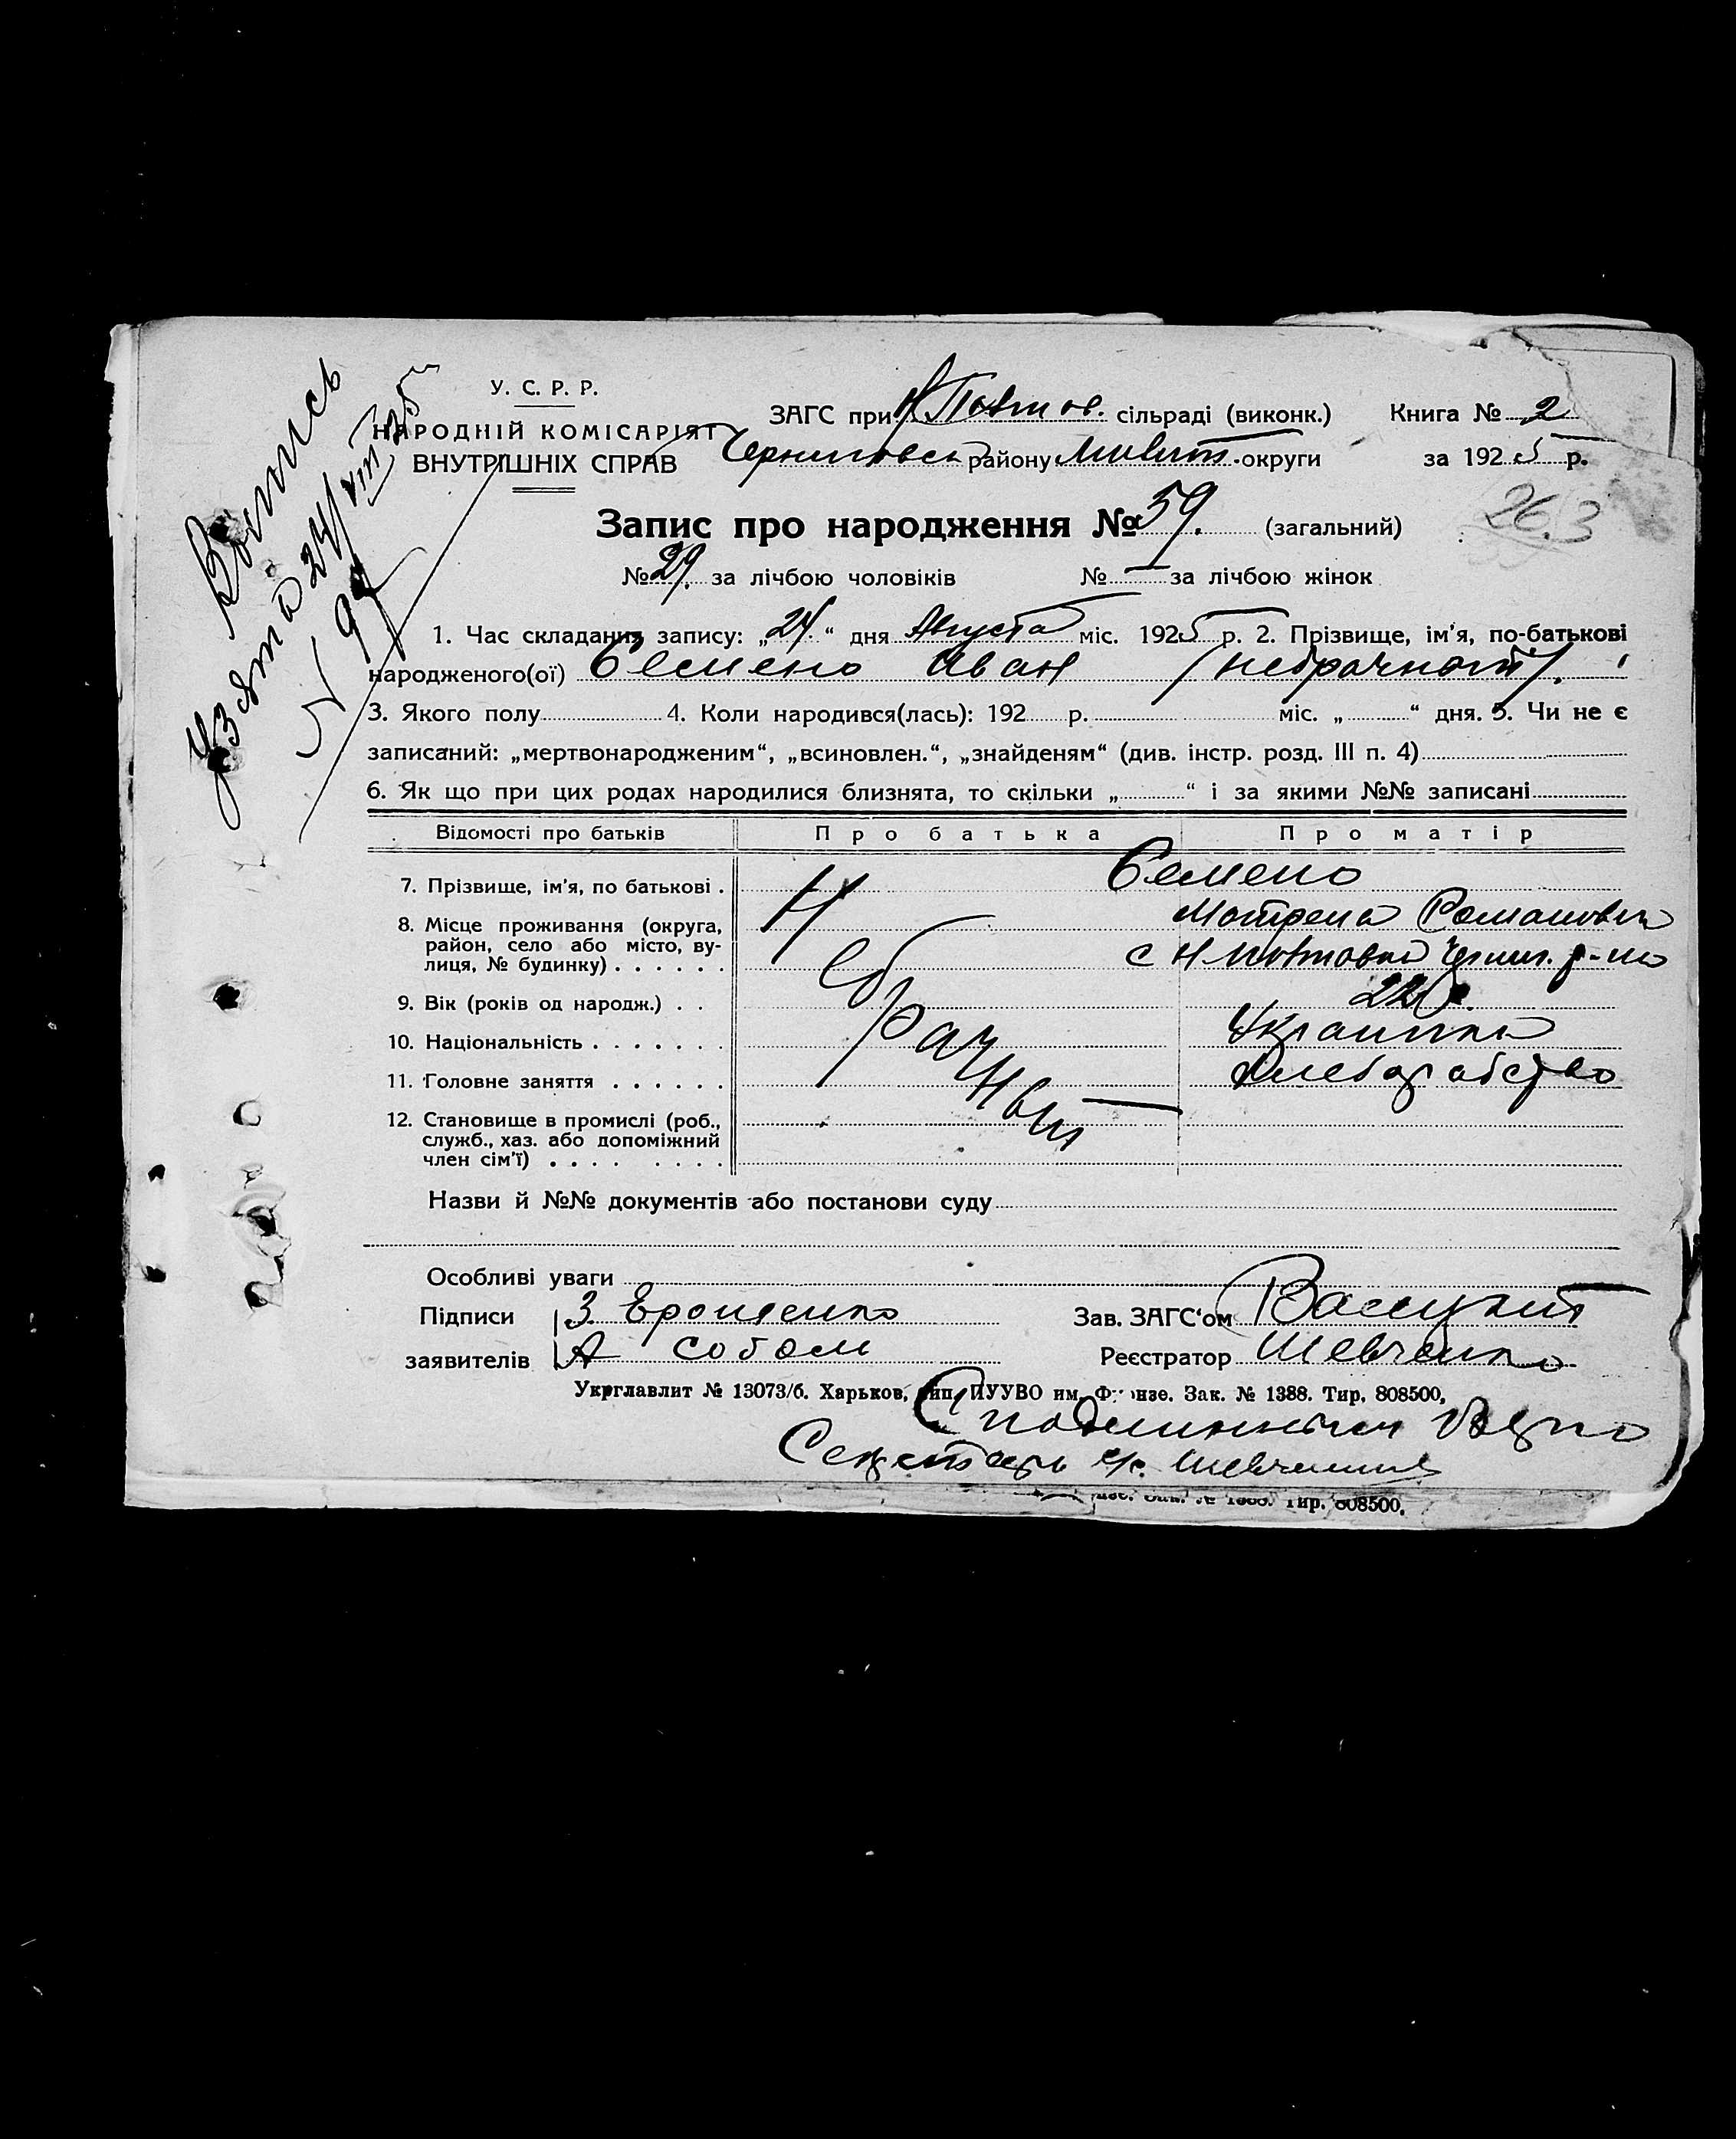 У. С. Р. Р.
НАРОДНІЙ КОМІСАРІЯТ
ВНУТРІШНІХ СПРАВ
ЗАГС при Н Полтов. сільраді (виконк.) Книга № 2
Черниговськ району Мелит. округи за 1925 р.
Випись
узята 24/VIII 25
№ 94
26.3
Запис про народження № 59. (загальний)
№ 29. за лічбою чоловіків № — за лічбою жінок
1. Час складання запису: „24.“ дня Августа міс. 1925 р. 2. Прізвище, ім’я, по-батькові
народженого(ої) Семено Иван /небрачный/.
3. Якого полу 4. Коли народився(лась): 192 р. міс. „ “ дня. 5. Чи не є
записаний: „мертвонародженим“, „всиновлен.“, „знайденям“ (див. інстр. розд. III п. 4)
6. Як що при цих родах народилися близнята, то скільки „ “ і за якими №№ записані
Відомості про батьків Про батька Про матір
7. Прізвище, ім’я, по батькові . Семено
Мотрена Романовна
8. Місце проживання (округа,
район, село або місто, ву-
лиця, № будинку) . . . . . . с Н Полтовка Черниг. р-на
9. Вік (років од народж.) . . 22
10. Національність . . . . . . . Украинка
11. Головне заняття . . . . . . Хлеборобство
12. Становище в промислі (роб.,
служб., хаз. або допоміжний
член сім’ї) . . . . . . . .
Небрачный
Назви й №№ документів або постанови суду
Особливі уваги
Підписи З. Ерошенко Зав. ЗАГС‘ом
заявителів А собом Реєстратор Шевченко
Укрглавлит № 13073/б. Харьков, тип. ПУУВО им. Фрунзе. Зак. № 1388. Тир. 808500.
С подлинным верно
Секретарь с/с. Шевченко
Тир. 808500.